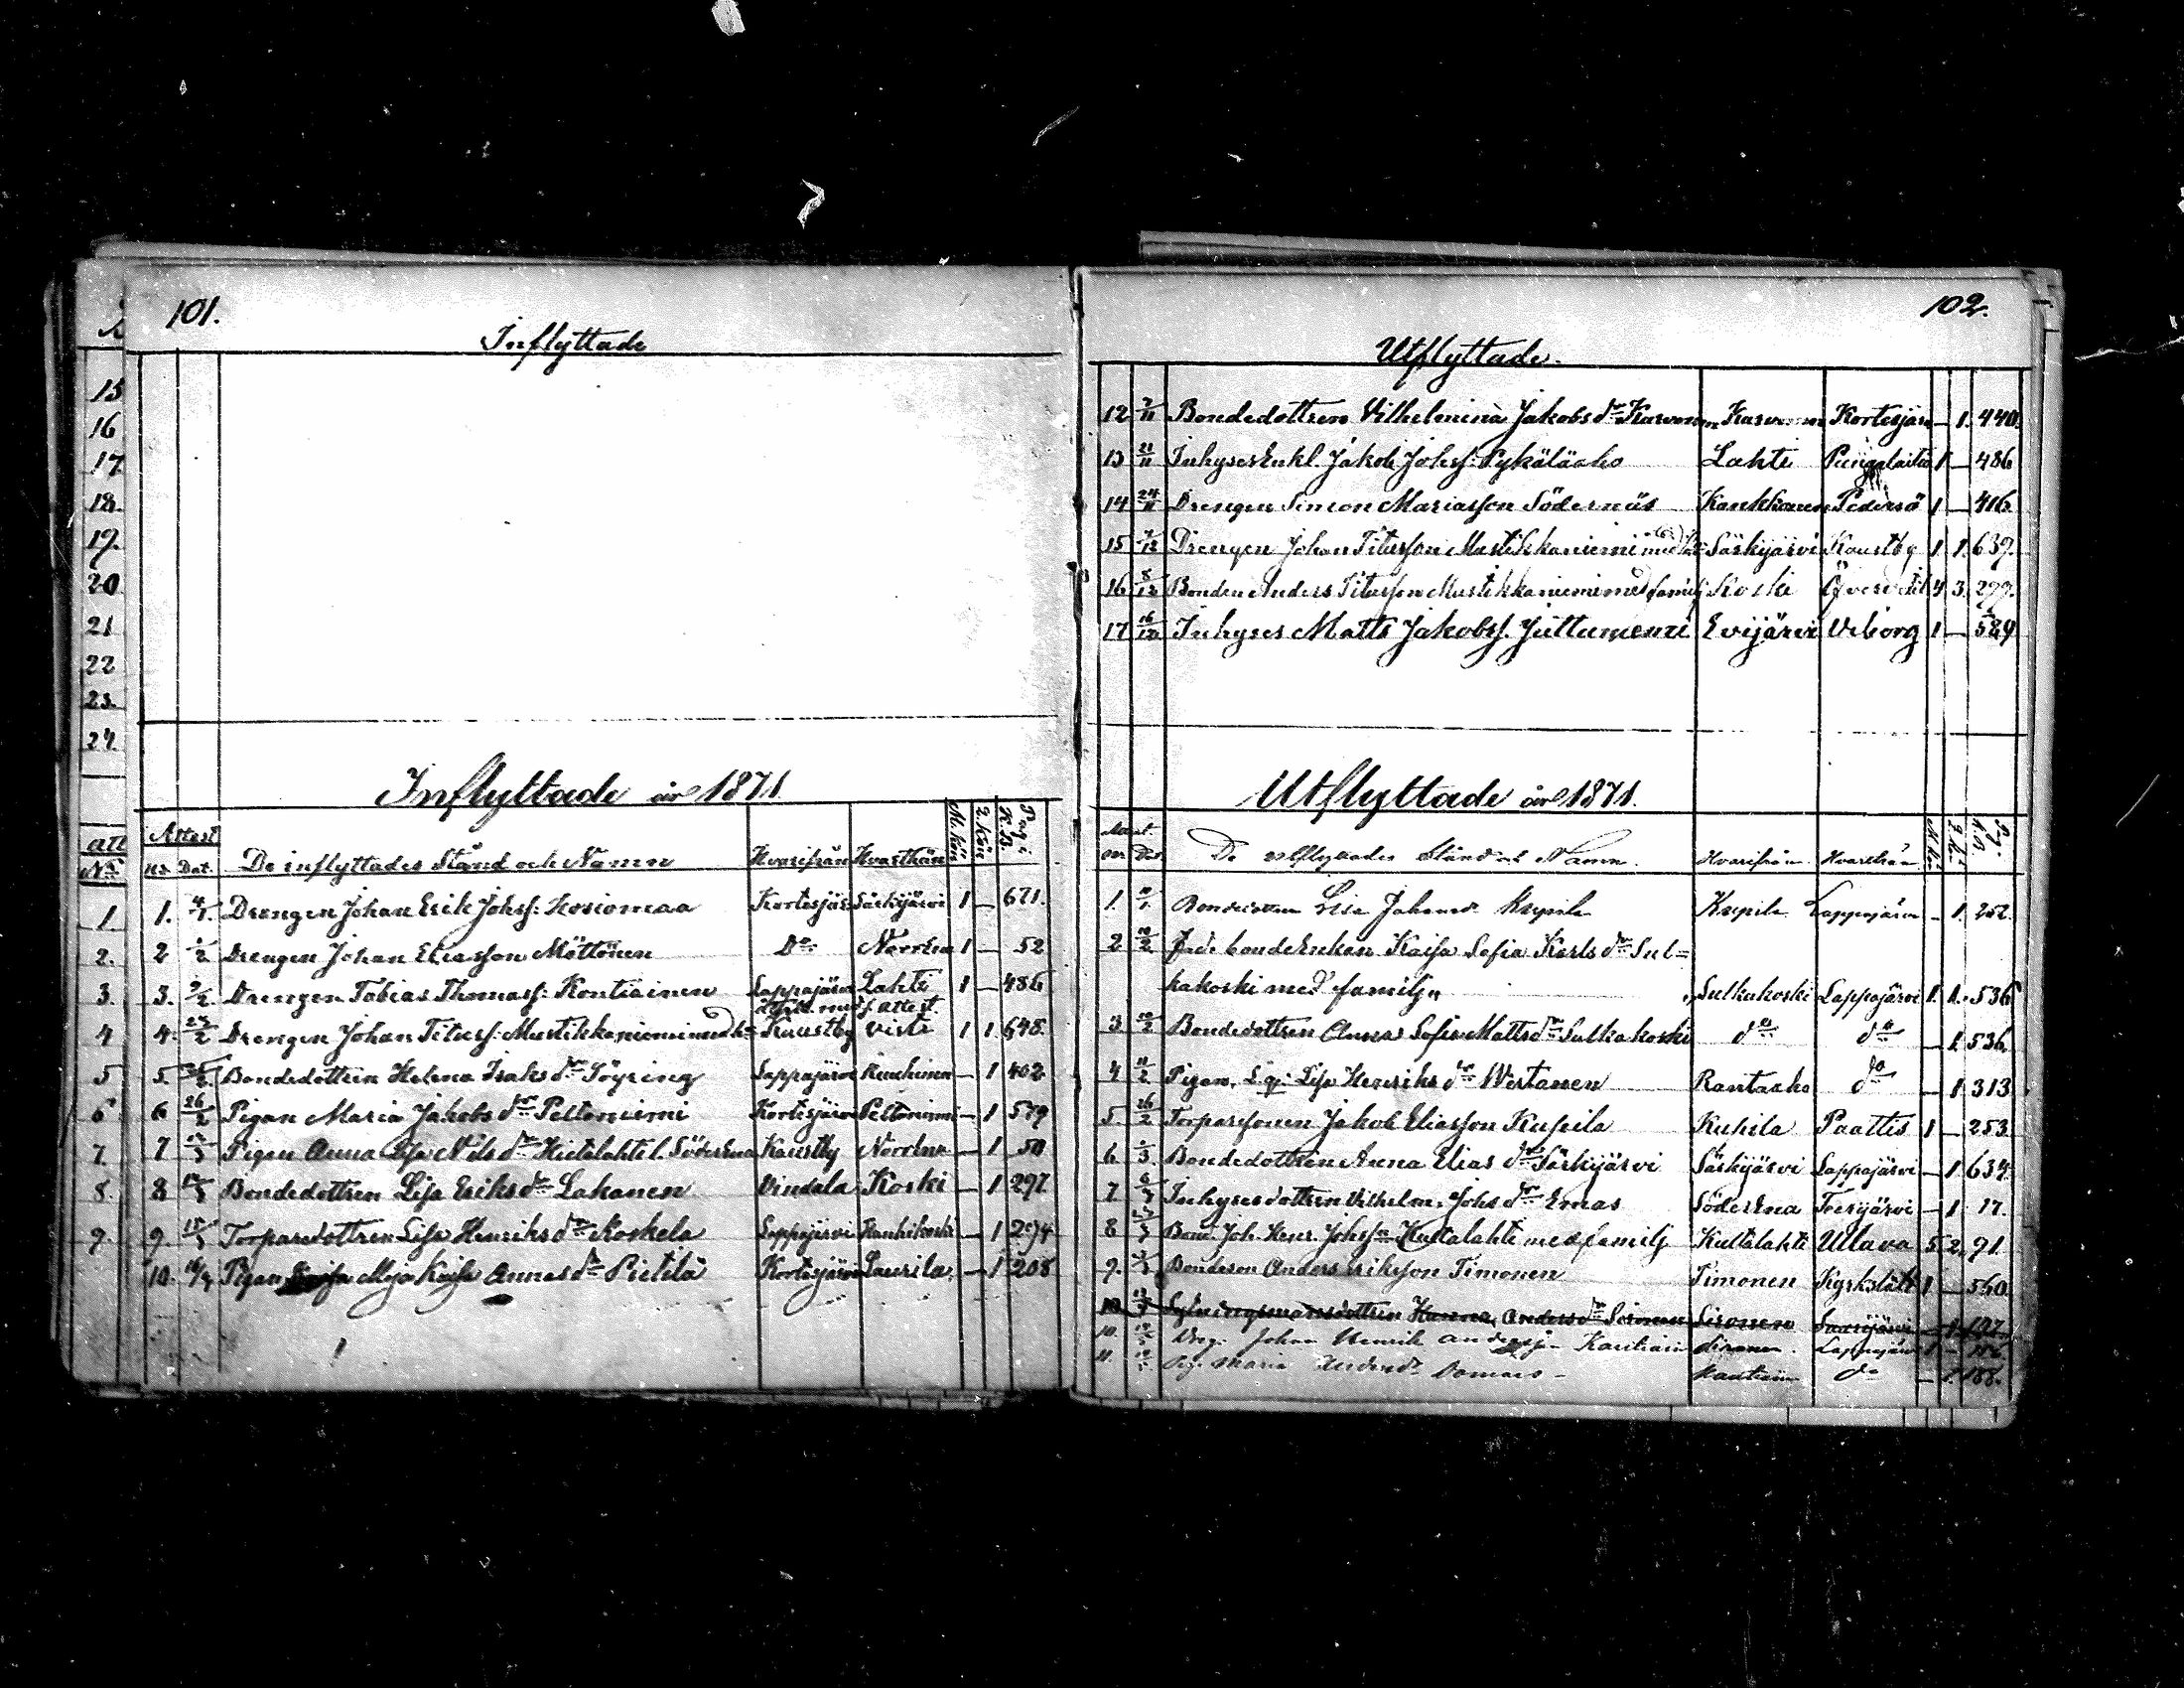 101.
Inflyttade
15
16
17.
18.
19.
20
21
22
23.
24.
Inflyttade år 1871.
Attest
No Dat. De inflyttades Stånd och Namn Hvarifrån Hvarthän M. kön Q. kön Pag. i K.B.
1 1. 4/1 Drengen Johan Erik Johsf: Kosiomaa Kortesjär Särkijärvi 1 — 671.
2. 2 1/2 Drengen Johan Eliasson Möttönen Do Norrena 1 — 52
3. 3. 9/2 Drengen Tobias Thomasf: Kontiainen Lappajärvi Lahti 1 — 486
attest
4 4. 24/2 Drengen Johan Titusf: Mustikkaniemi med h Kaustby Visti 1 1. 648.
5 5. Bondedottren Helena Isaks dr Töyring Lappajärvi — 1 402
6 6 26/2 Pigan Maria Jakobs dr Peltoniemi Kortesjärvi Peltoniemi — 1 579
7. 7 Pigan Anna Lisa Nils dr Hietalahti l. Söderena Kaustby Norrena — 1 50
8. 8 Bondedottren Lisa Eriks dr Lahanen Vindala Koski — 1 297
9. 9. Torparedottren Lisa Henriks dr Koskela Lappajärvi — 1 294
10. 16/4 Pigan Maja Kaisa Annas dr Pietilä Kortesjärvi Laurila — 1 208
102.
Utflyttade.
12 7/11 Bondedottren Vilhelmina Jakobs dr Karvonen Karvonen Kortesjärv — 1. 440.
13 21/11 Inhyses Enkl. Jakob Johsf: Pykäläaho Lahti 1 — 486
14 24/11 Drengen Simon Mariasson Södernäs Kankkonen Pedersö 1 — 416
15 7/12 Drengen Johan Titusson Mustikkaniemi med h Särkijärvi Kaustby 1 1. 639.
16 8/12 Bonden Anders Titusson Mustikkaniemi med familj Koski 4 3. 299.
17 16/12 Inhyses Matts Jakobsf. Juttuniemi Evijärvi Viborg 1 — 589
Utflyttade år 1871.
De utflyttades Stånd och Namn. Hvarifrån Hvarthän
1. Bondedottren Lisa Johansdr Kupila Kupila Lappajärvi — 1. 252.
2 10/2 Bondeenkan Kaisa Sofia Karls dr Sul=
kakoski med familj Sulkakoski Lappajärvi 1. 1. 536
3 10/2 Bondedottren Anna Sofia Matts dr Sulkakoski do do — 1. 536.
4 11/2 Pigan Lisa Henriks dr Wertanen Rantaaho do — 1 313
5. 26/2 Torparesonen Jakob Eliasson Kupila Kupila Paattis 1 — 253.
6 Bondedottren Anna Elias dr Särkijärvi Särkijärvi Lappajärvi — 1 634.
7 Inhysesdottren Vilhelm. Johs dr Emas Söderena — 1. 17.
8 Bond. Joh. Henr. Johsson Hietalahti med familj Kultalahti Ullava 5 2. 91.
9. Bondeson Anders Eriksson Timonen Timonen Kyrkslätt 1 — 560.
10. Hanna Anders dr Sironen Sironen Saarijärvi — 1. 197.
10. Johan Henrik Andersson Kontiain Sironen Lappajär 1 —
11. Maria do — 1. 188.